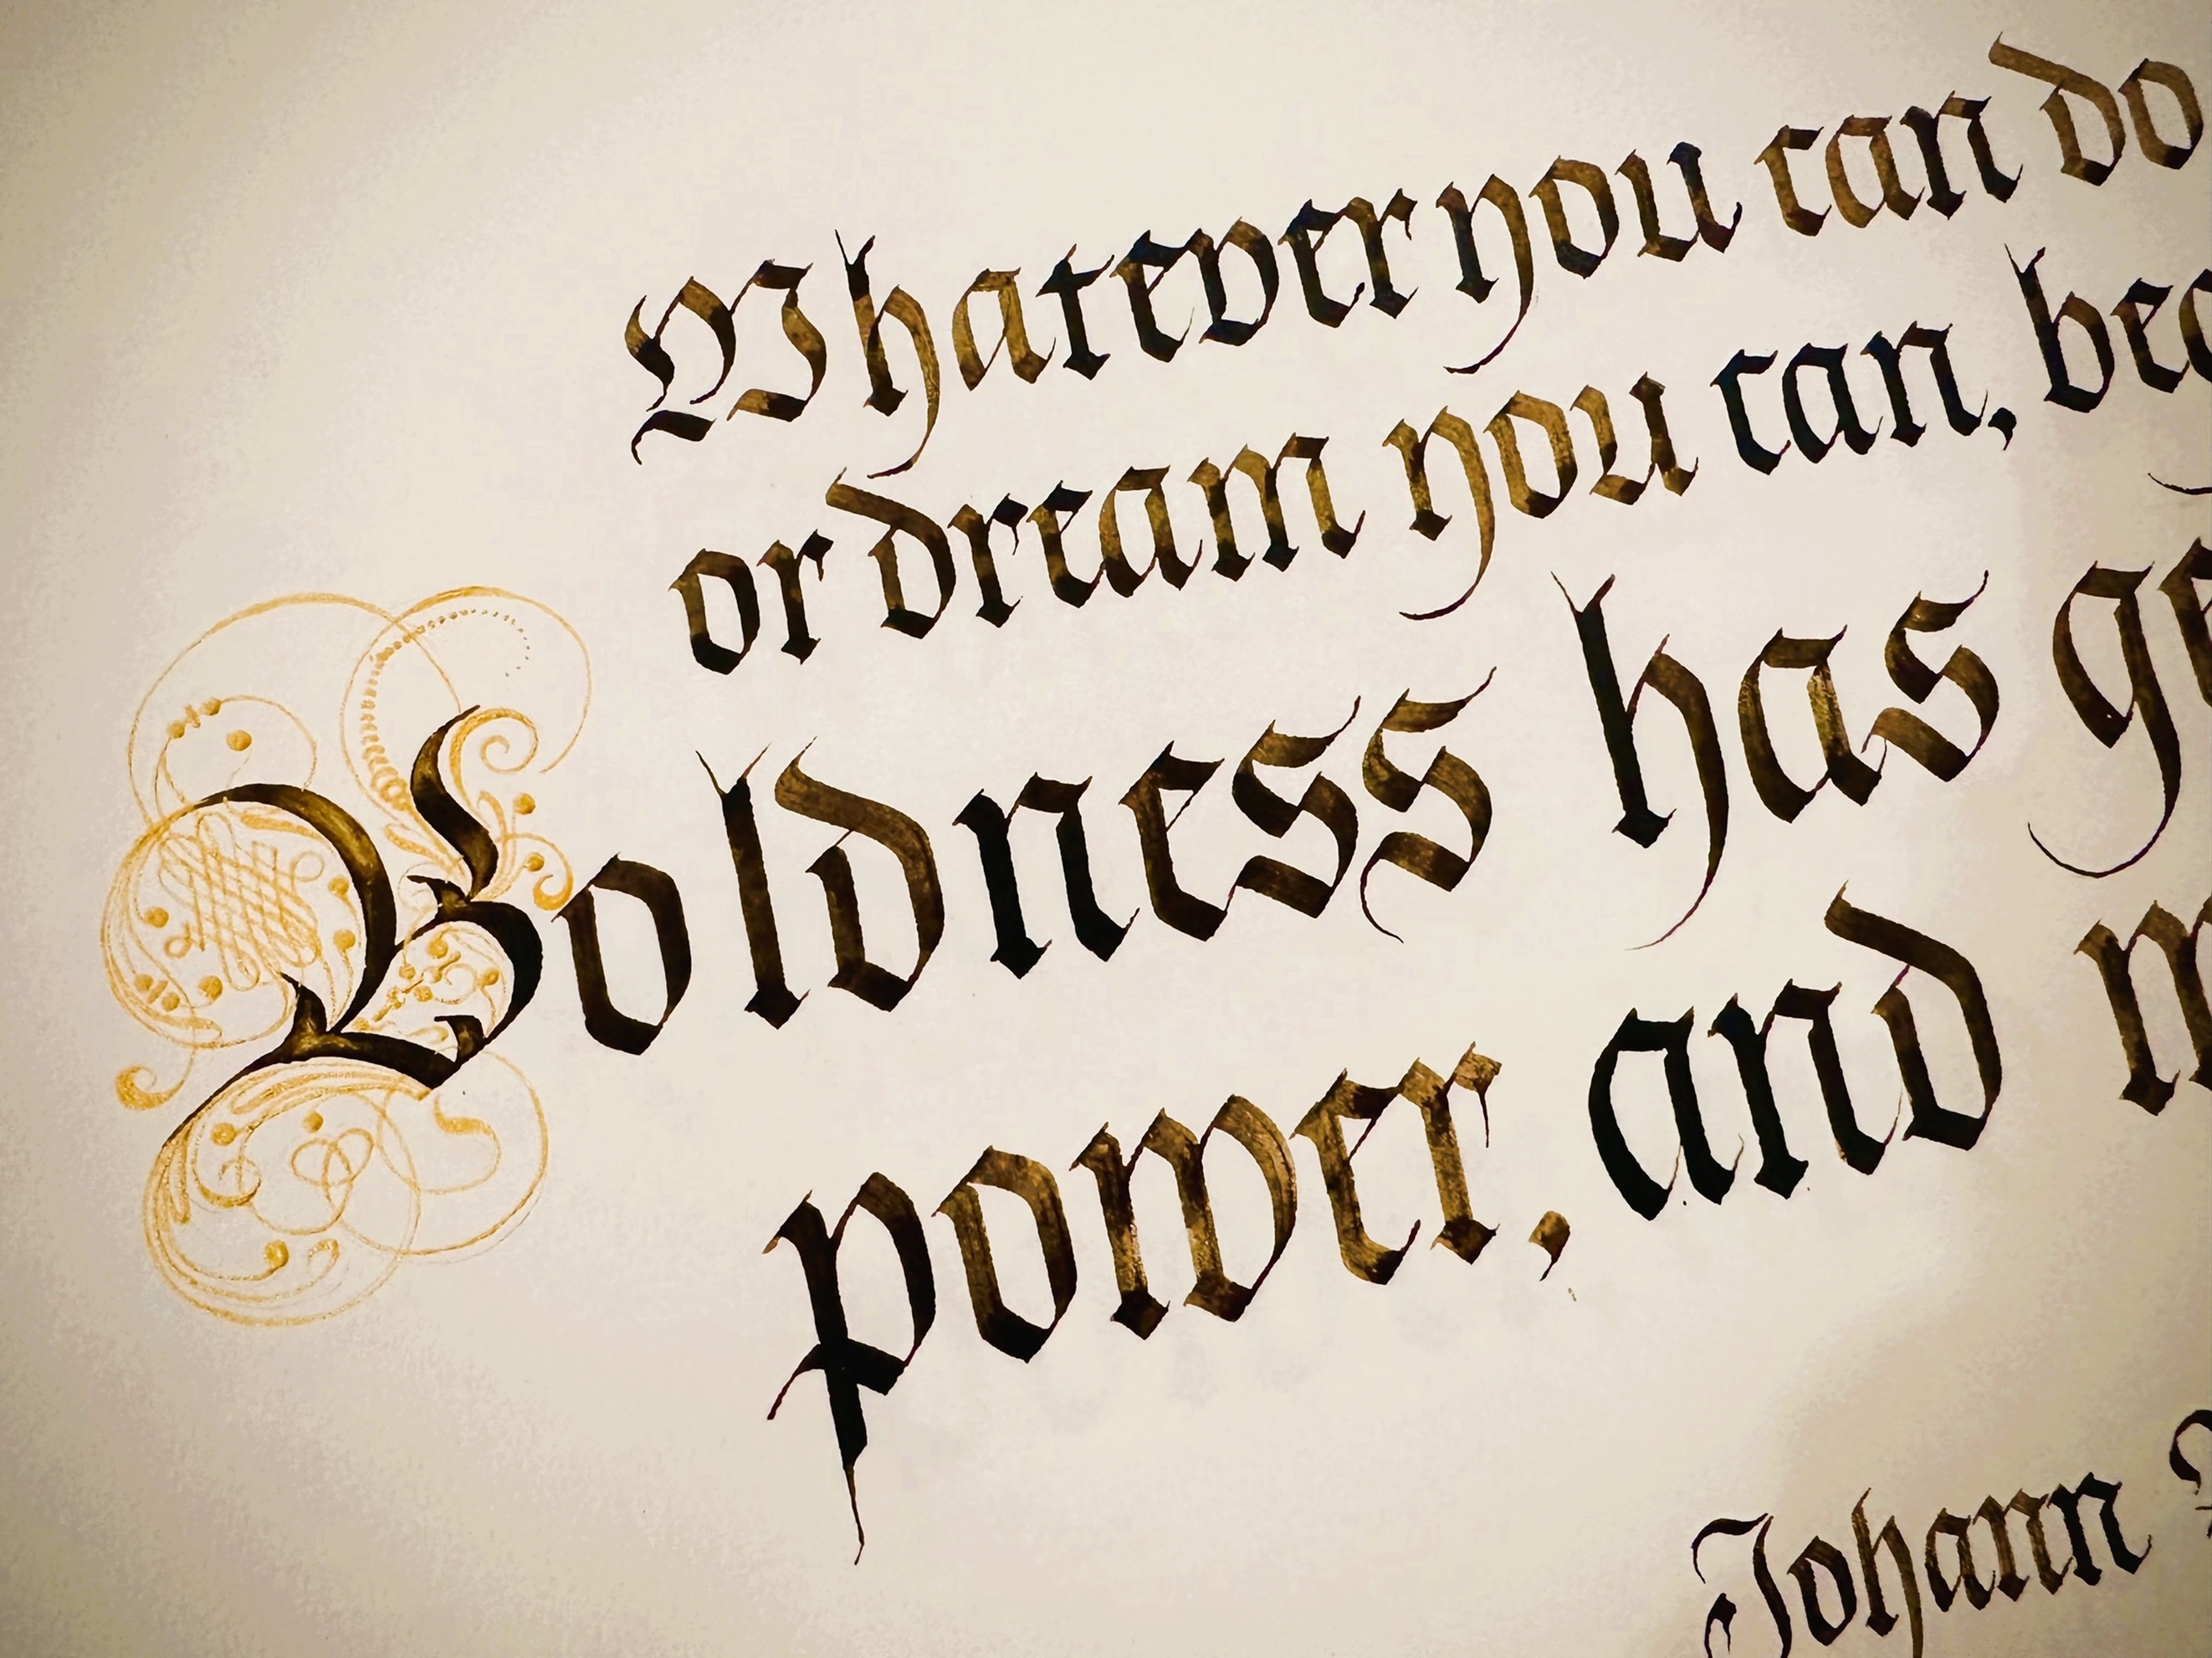 Whatever you can do
or dream you can, beg
Boldness has ge
power, and m
Johann